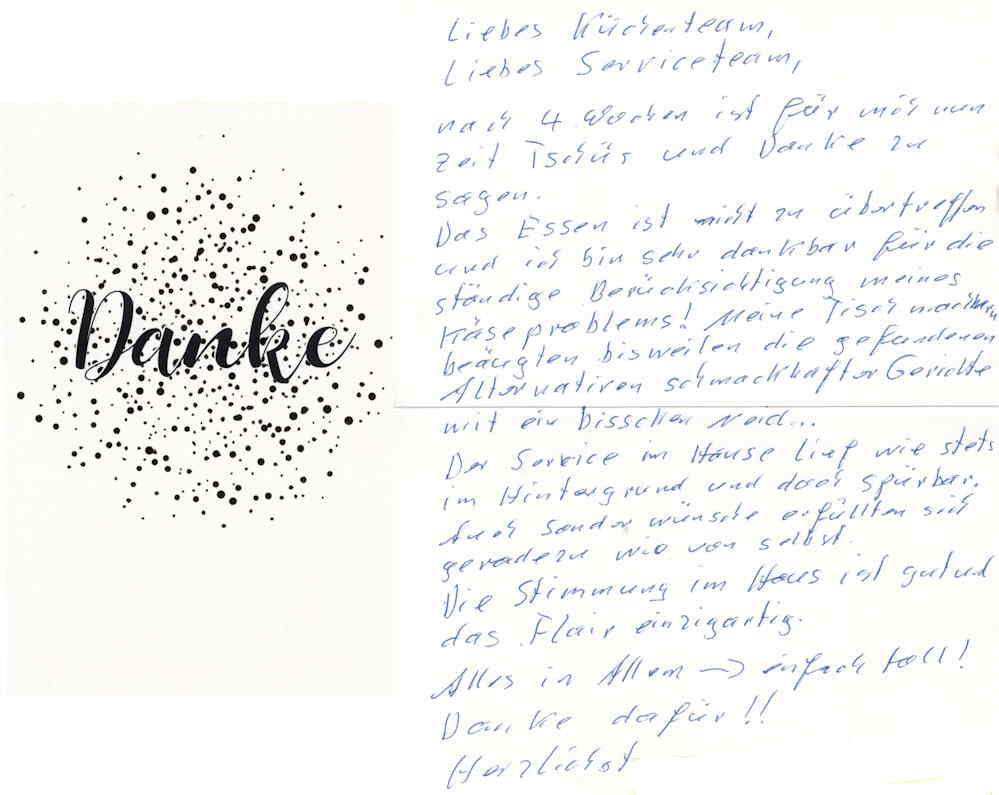 Danke
Liebes Küchenteam,
Liebes Serviceteam,
nach 4 Wochen ist für mich nun
Zeit Tschüs und Danke zu
sagen.
Das Essen ist nicht zu übertreffen
und ich bin sehr dankbar für die
ständige Berücksichtigung meines
Käseproblems! Meine Tischnachbarn
beäugten bisweilen die gefundenen
Alternativen schmackhafter Gerichte
mit ein bisschen Neid...
Der Service im Hause lief wie stets
im Hintergrund und doch spürbar.
Auch Sonderwünsche erfüllten sich
geradezu wie von selbst.
Die Stimmung im Haus ist gut und
das Flair einzigartig.
Alles in Allem → einfach toll!
Danke dafür!!
Herzlichst